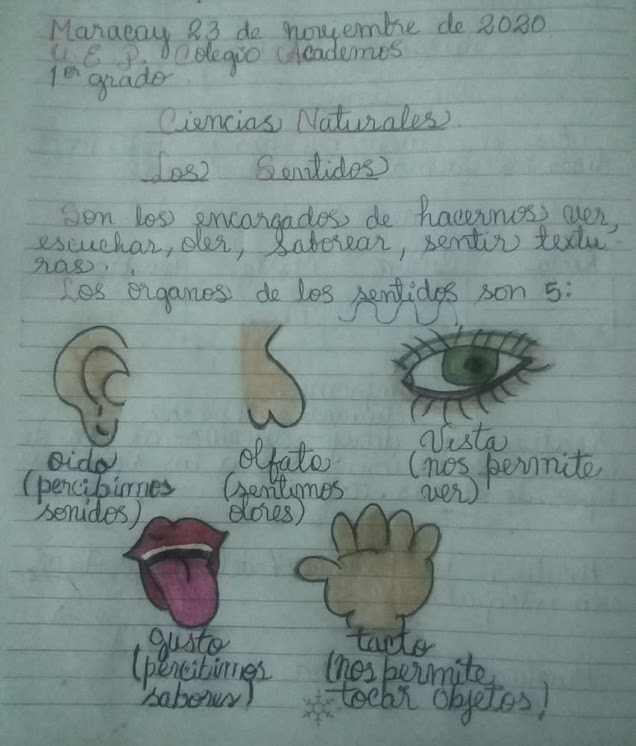 Maracay 23 de noviembre de 2020
U E P. Colegio Academos
1er grado
Ciencias Naturales
Los Sentidos
Son los encargados de hacernos ver,
escuchar, oler, saborear, sentir textu
ras.
Los órganos de los sentidos son 5:
oido
(percibimos
sonidos)
olfato
(sentimos
olores)
Vista
(nos permite
ver)
gusto
(percibimos
sabores)
tacto
(nos permite
tocar objetos)